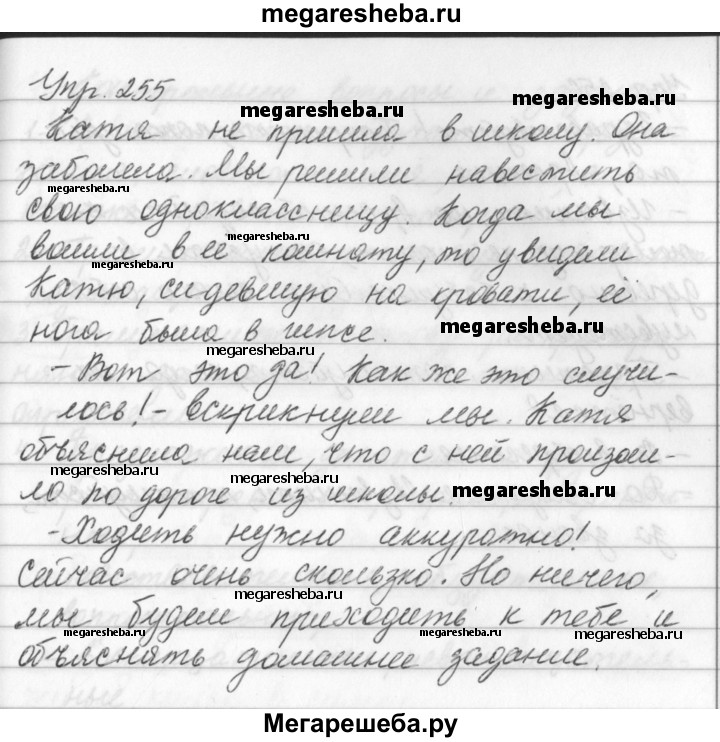 megaresheba.ru
Упр. 255
megaresheba.ru
megaresheba.ru
Катя не пришла в школу. Она
заболела. Мы решили навестить
megaresheba.ru
свою одноклассницу. Когда мы
megaresheba.ru
вошли в её комнату, то увидели
megaresheba.ru
Катю, сидевшую на кровати, её
нога была в гипсе.
megaresheba.ru
megaresheba.ru
- Вот это да! Как же это случи-
лось! - вскрикнули мы. Катя
объяснила нам, что с ней произош-
megaresheba.ru
megaresheba.ru
ло по дороге из школы.
megaresheba.ru
- Ходить нужно аккуратно!
Сейчас очень скользко. Но ничего,
megaresheba.ru
мы будем приходить к тебе и
megaresheba.ru
megaresheba.ru
megaresheba.ru
объяснять домашнее задание.
Мегарешеба.ру